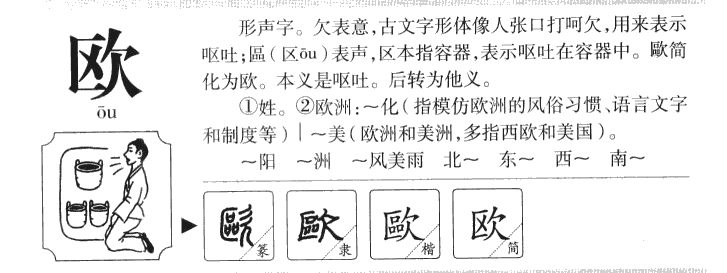 欧
ōu
形声字。欠表意,古文字形体像人张口打呵欠,用来表示
呕吐;區(区ōu)表声,区本指容器,表示呕吐在容器中。歐简
化为欧。本义是呕吐。后转为他义。
①姓。②欧洲:～化(指模仿欧洲的风俗习惯、语言文字
和制度等)｜～美(欧洲和美洲,多指西欧和美国)。
～阳 ～洲 ～风美雨 北～ 东～ 西～ 南～
歐 篆 歐 隶 歐 楷 欧 简